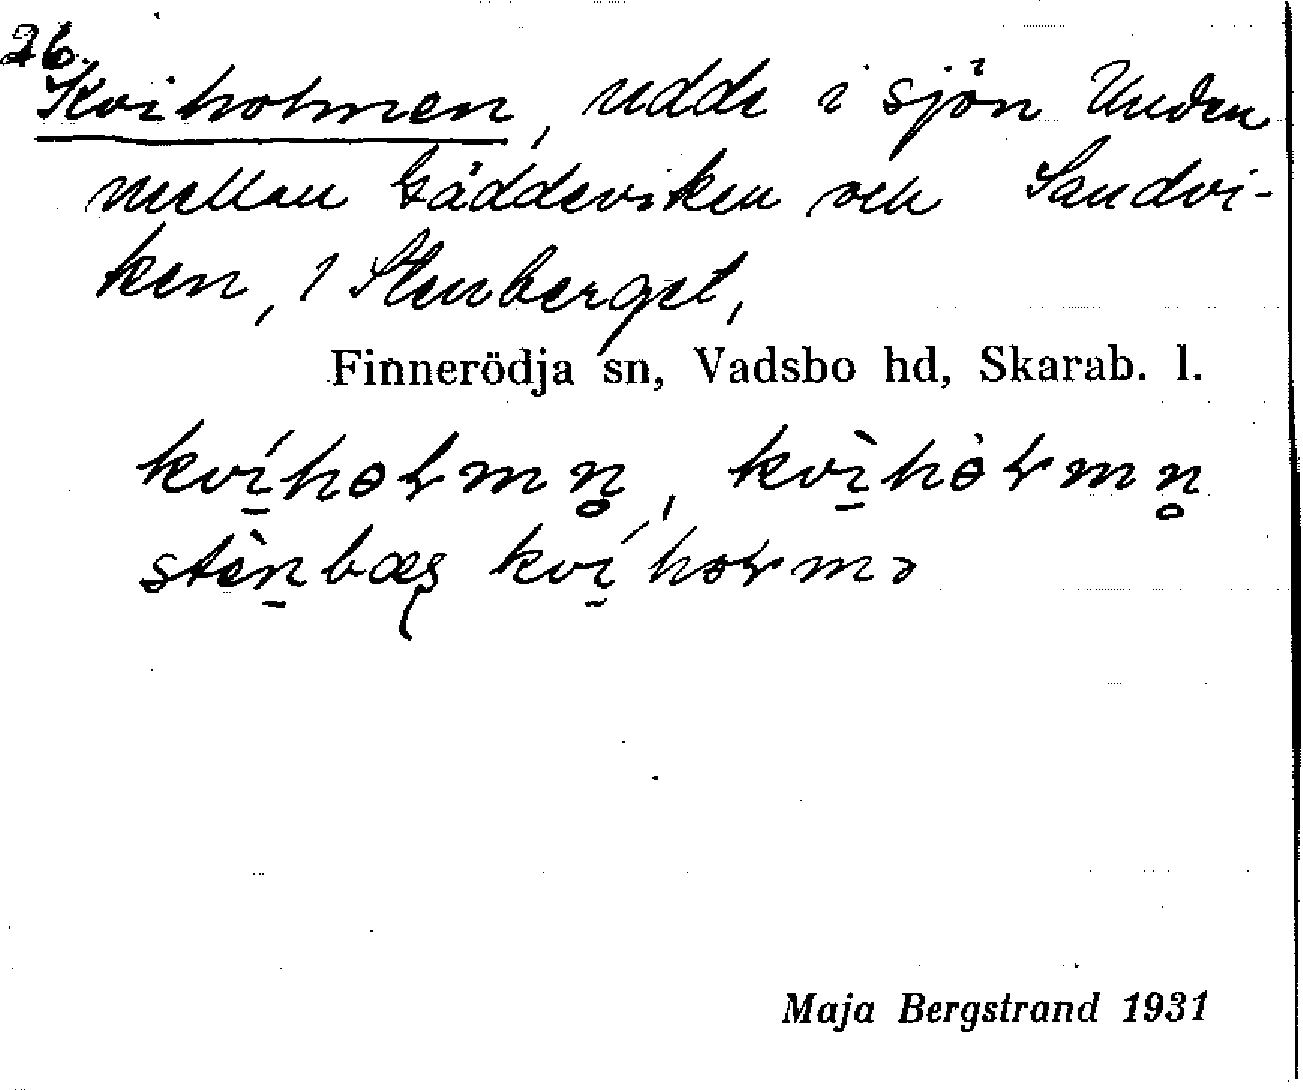 26.
Kviholmen, udde i sjön Unden
mellan Gäddeviken och Sandvi-
ken, 1 Stenberget,
Finnerödja sn, Vadsbo hd, Skarab. l.
kví̱hoɫmn̥, kvì̱hòɫmn̥
stèṉbæg kví̱hoɫmə
Maja Bergstrand 1931